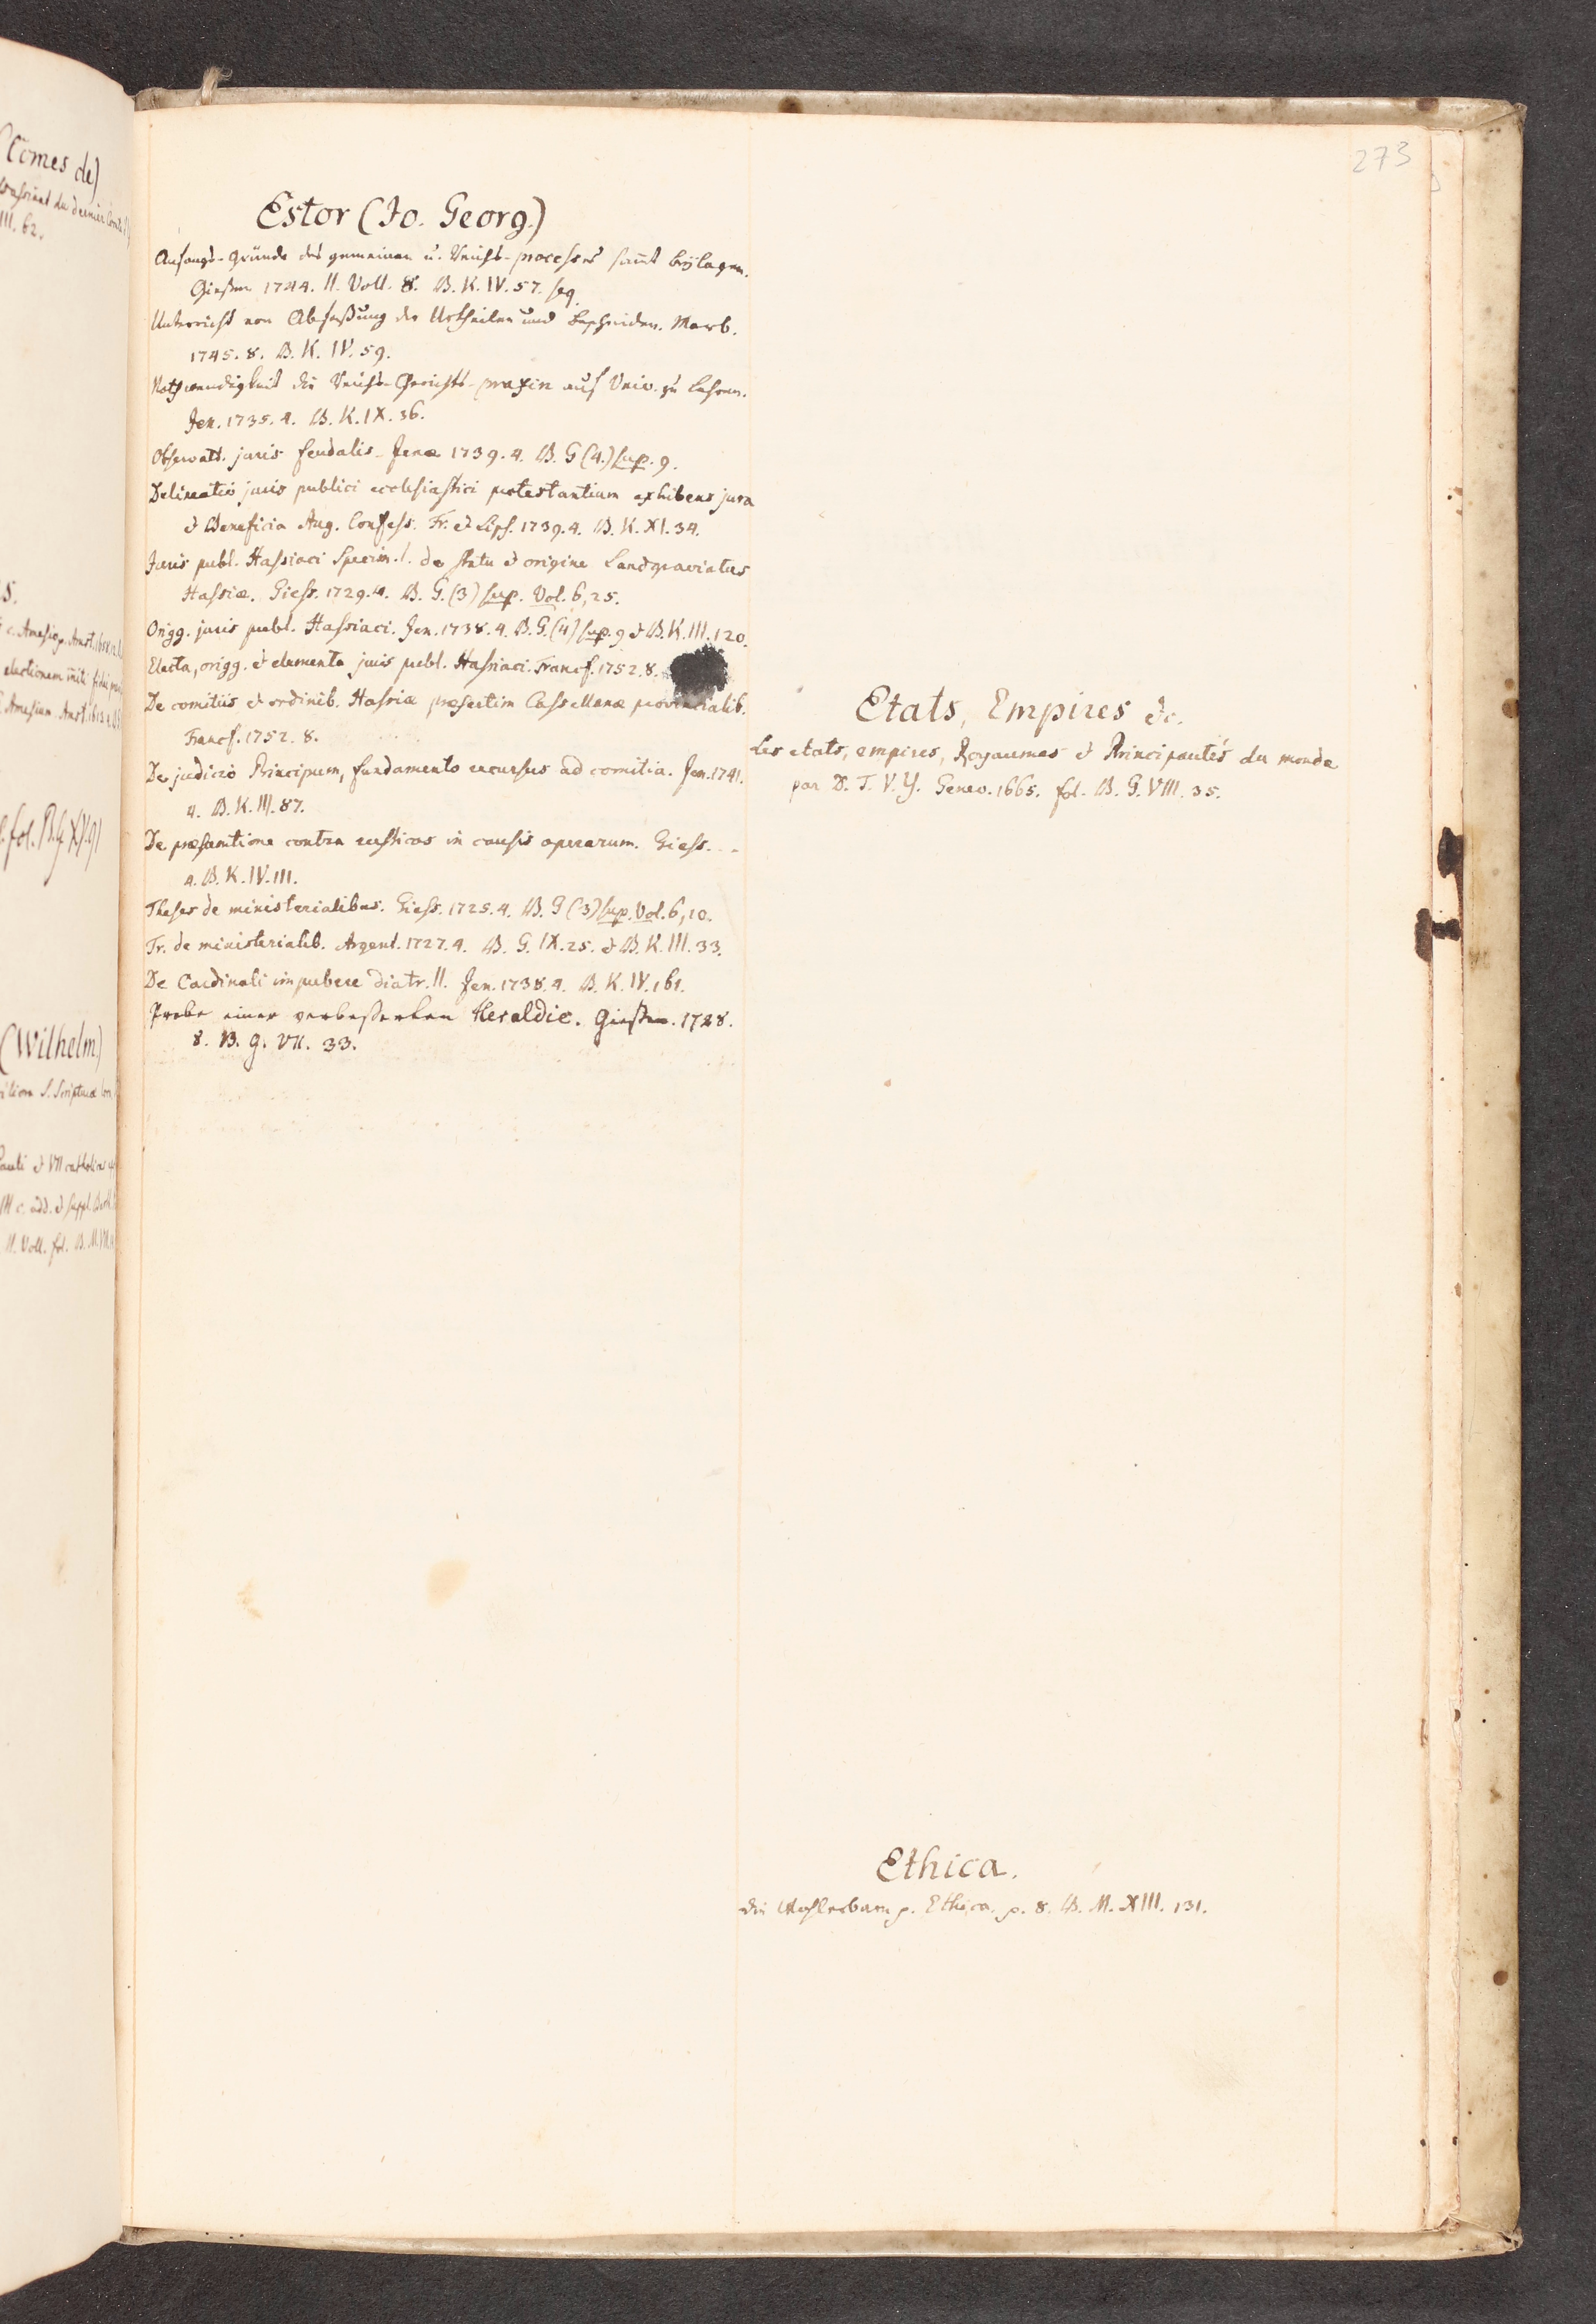 273
Estor (Jo. Georg.)
Anfangs-Gründe des gemeinen u. Reichs-processes samt beylagen.
Giessen 1744. II. Voll. 8. B. K. IV. 57. seq.
Unterricht von Abfassung der Urtheilen und bescheiden. Marb.
1745. 8. B. K. IV. 59.
Nothwendigkeit die Reichs-Gerichts-praxin auf Univ. zu lehren.
Jen. 1735. 4. B. K. IX. 36.
Observatt. juris feudalis. Jenæ 1739. 4. B. G (4.) sup. 9.
Delineatio juris publici ecclesiastici protestantium exhibens jura
et Beneficia Aug. Confess. Fr. et Lips. 1739. 4. B. K. XI. 34.
Juris publ. Hassiaci Specim. I. de statu et origine Landgraviatus
Hassiæ. Giess. 1729. 4. B. G. (3) sup. Vol. 6, 25.
Origg. juris publ. Hassiaci. Jen. 1738. 4. B. G. (4) sup. 9 et B. K. III. 120.
Electa, origg. et elementa juris publ. Hassiaci. Francf. 1752. 8.
De comitiis et ordinib. Hassiæ præsertim Cassellanæ provincialib.
Francf. 1752. 8.
De judicio Principum, fundamento recursus ad comitia. Jen. 1741.
4. B. K. III. 87.
De præsumtione contra rusticos in causis operarum. Giess. . .
4. B. K. IV. 111.
Theses de ministerialibus. Giess. 1725. 4. B. G (3) sup. Vol. 6, 10.
Tr. de ministerialib. Argent. 1727. 4. B. G. IX. 25. et B. K. III. 33.
De Cardinali impubere diatr. II. Jen. 1738. 4. B. K. IV. 161.
Probe einer verbesserten Heraldic. Giessen. 1728.
8. B. G. VII. 33.
Etats, Empires &c.
Les etats, empires, Royaumes et Principautés du monde
par D. T. V. Y. Genev. 1665. fol. B. G. VIII. 35.
Ethica.
Ethica. 8. B. M. XIII. 131.
Comes de)
III. 62.
(Wilhelm)